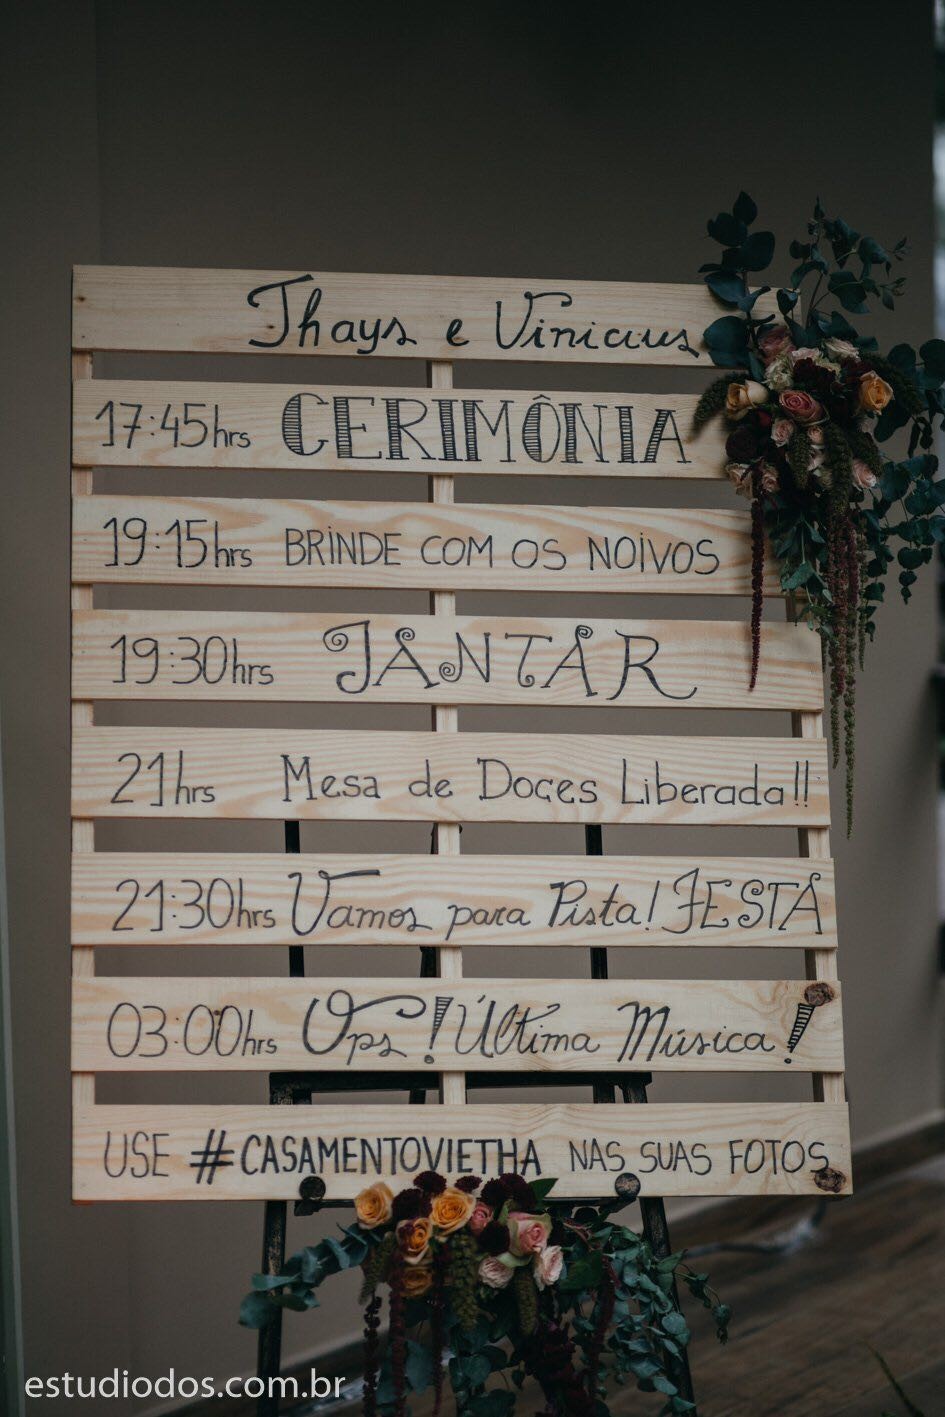 Thays e Vinicius
17:45hrs CERIMÔNIA
19:15hrs BRINDE COM OS NOIVOS
19:30hrs JANTAR
21hrs Mesa de Doces Liberada!!
21:30hrs Vamos para Pista! FESTA
03:00hrs Ops! Última Música!
USE #CASAMENTOVIETHA NAS SUAS FOTOS
estudiodos.com.br